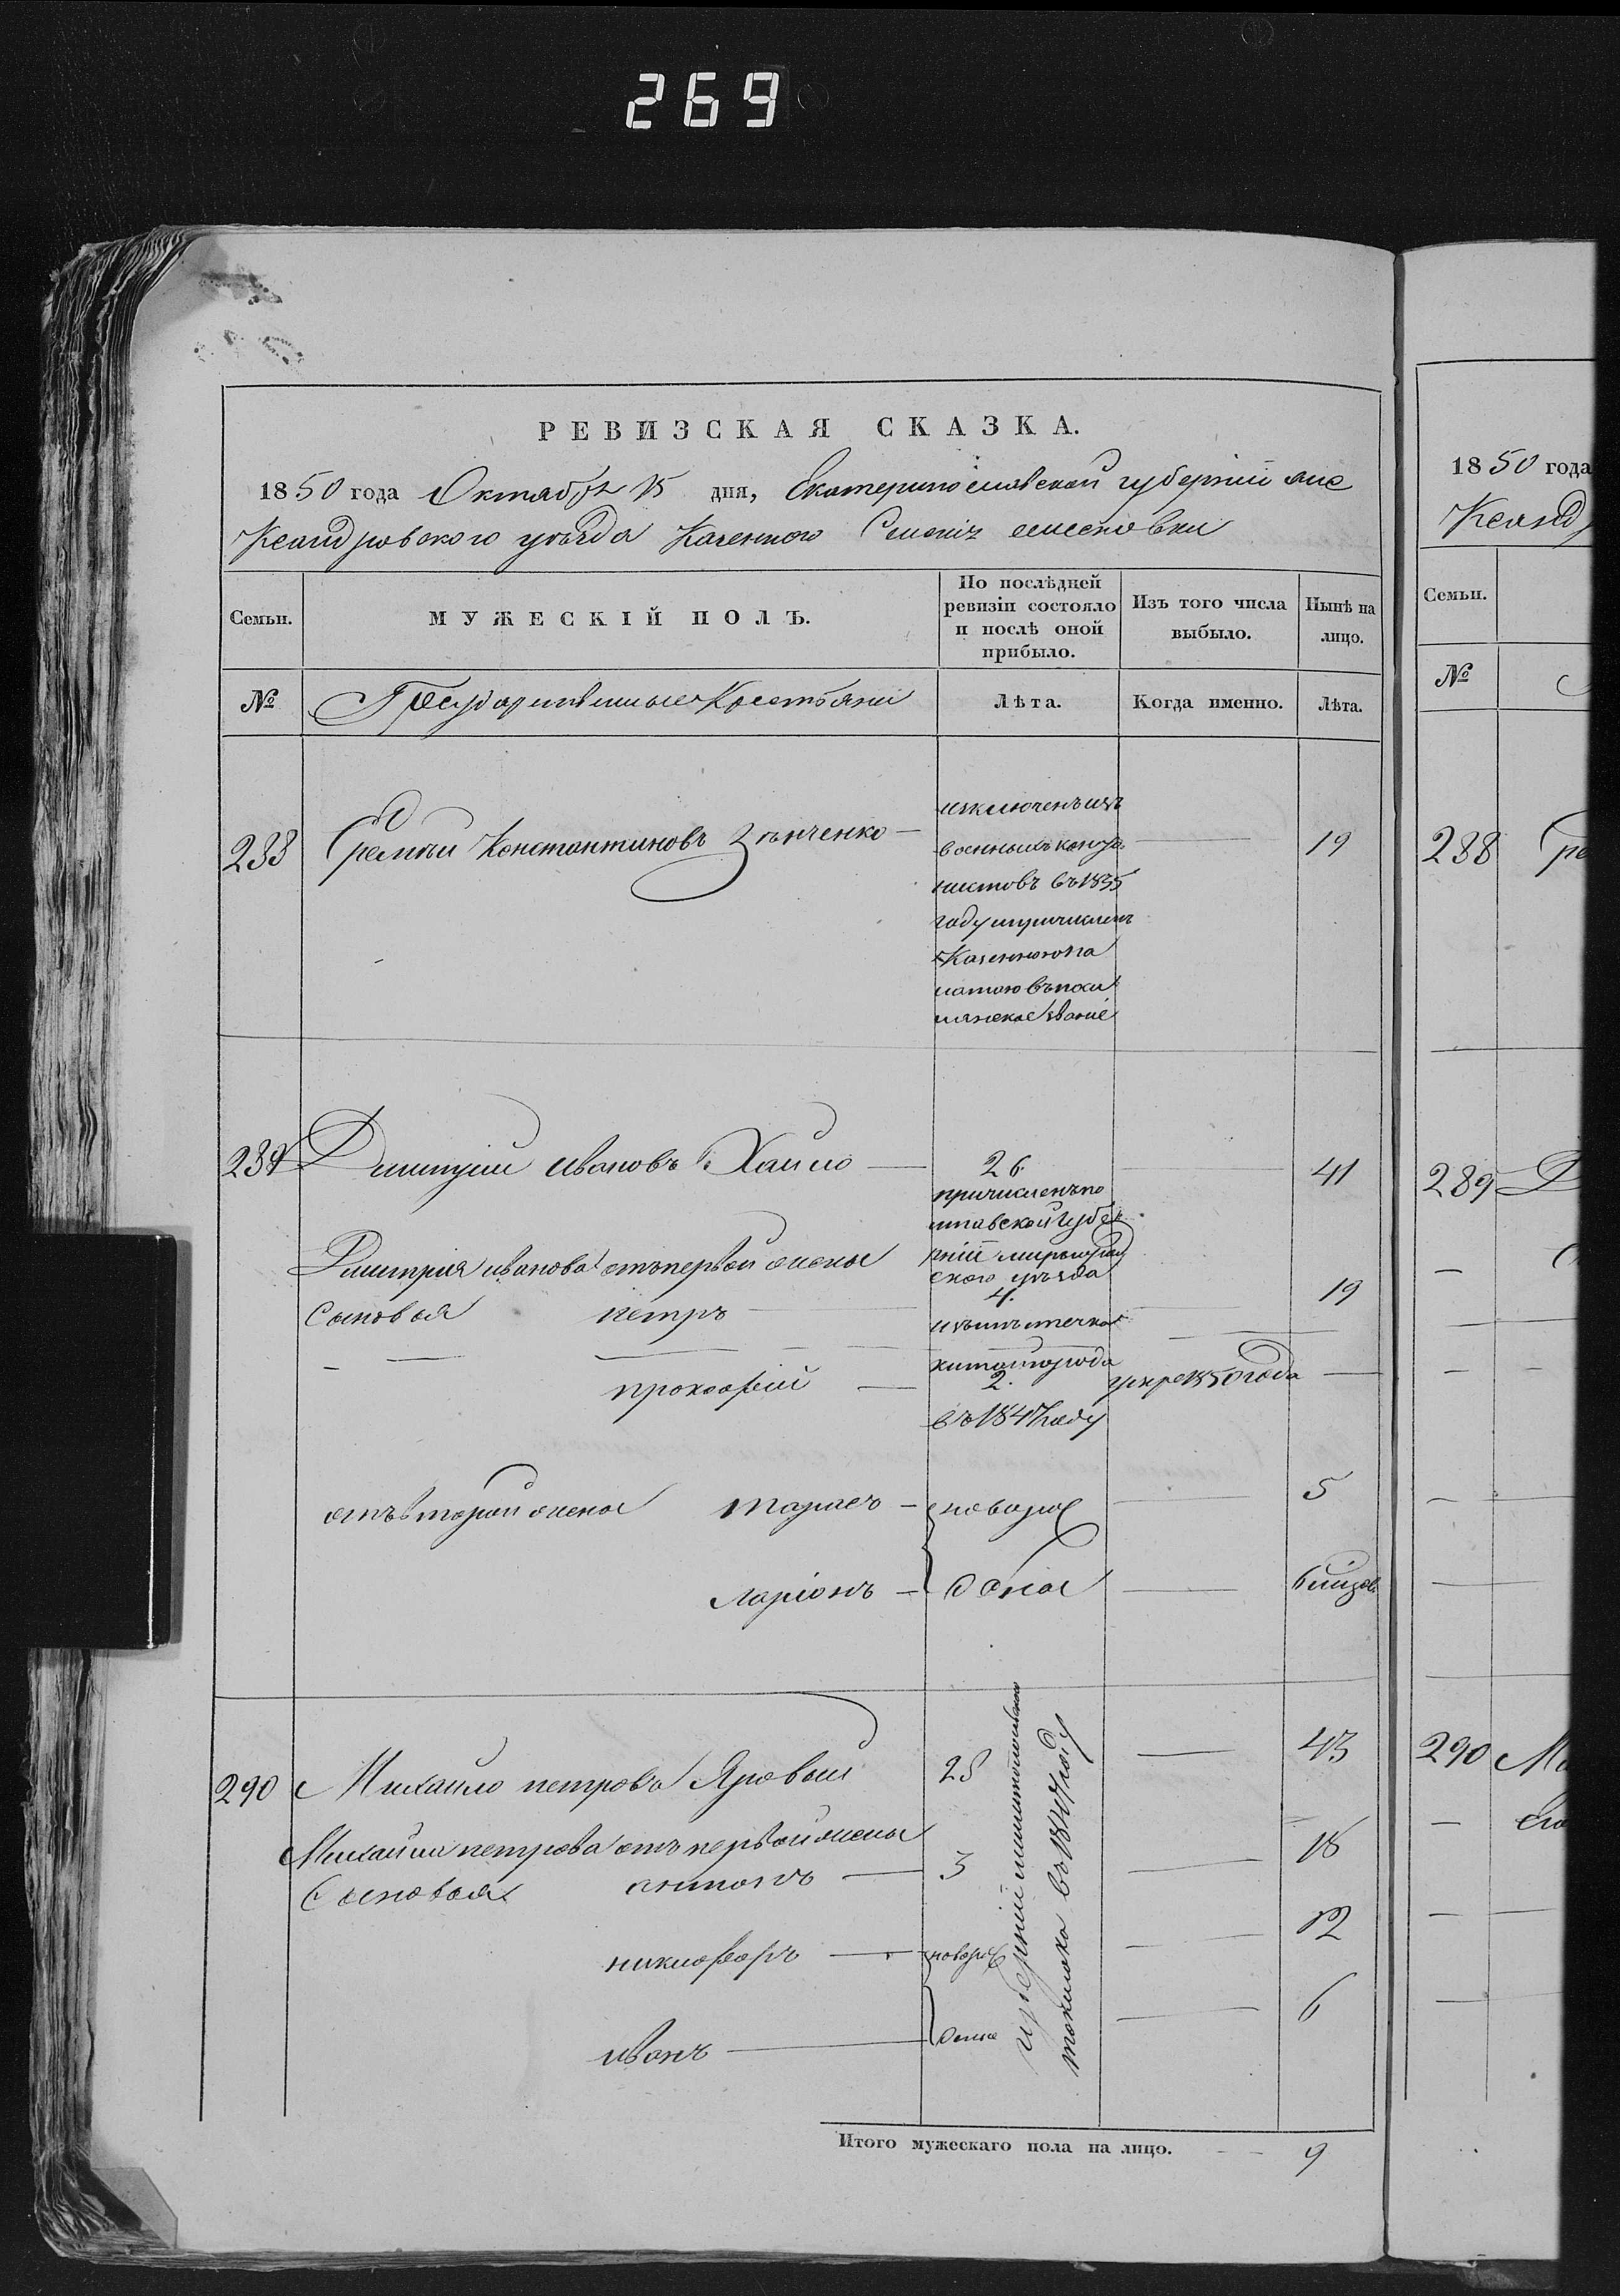 269
РЕВИЗСКАЯ СКАЗКА.
1850 года Октября 15 дня, Екатеринославской губерніи Але
Ксандровского уѣзда Казенного Селенія Семеновки
Семьи.
МУЖЕСКІЙ ПОЛЪ.
По послѣдней ревизіи состояло и послѣ оной прибыло.
Изъ того числа выбыло.
Нынѣ на лицо.
№
Государственные Крестьяни
Лѣта.
Когда именно.
Лѣта.
288 Еремѣй Константиновъ Зѣнченко 19
изключенъ изъ
военныхъ канто
нистовъ въ 1835
году и причисленъ
Казенною па
латою въ посе
лянское званіе
289 Дмитрій Ивановъ Хайло 26 41
причисленъ по
лтавской губе
рніи миргород
ского уѣзда
Дмитрія иванова отъ первой жены
Сыновья петръ 4. 19
изъ мѣстечка
прокофій 2. умре 1850 года
въ 1847 году
отъ второй жены тарасъ новорож 5
Ларіонъ деные 6 мѣсяцов
290 Михайло петровъ Яровый 28 43
Михайла петрова отъ первой жены
Сыновья антонъ 3 18
никифоръ новорож 12
иванъ денные 6
губерніи
токмака въ 1847 году
Итого мужескаго пола на лицо. 9
1850 года
Ксанд
Семьи.
№
288
289
290 Ми